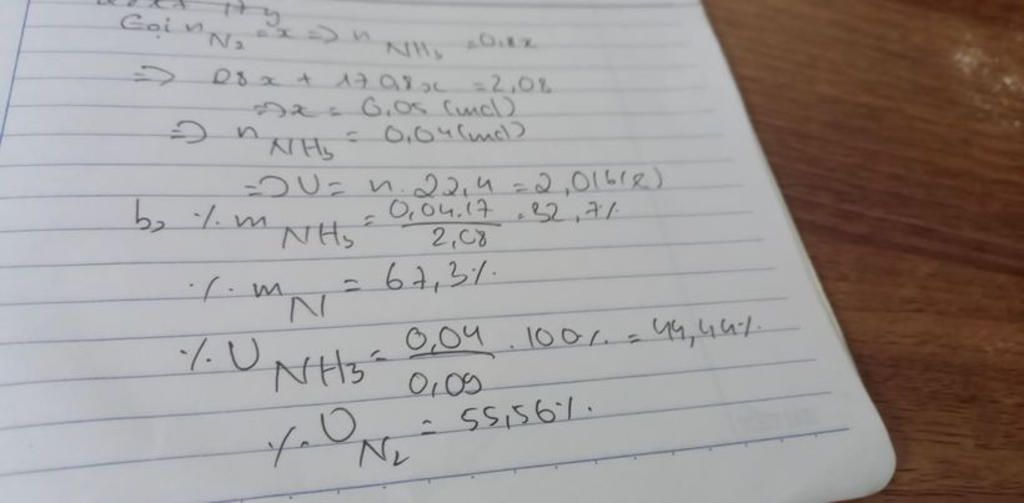 Gọi n N₂ = x => n NH₃ = 0,8x
=> 28x + 17.0,8x = 2,08
=> x = 0,05 (mol)
=> n NH₃ = 0,04 (mol)
=> V = n. 22,4 = 2,016 (l)
b, % m NH₃ = 0,04.17 / 2,08 = 32,7%
% m N = 67,3%.
% V NH3 = 0,04 / 0,09 . 100% = 44,44%.
% V N₂ = 55,56%.